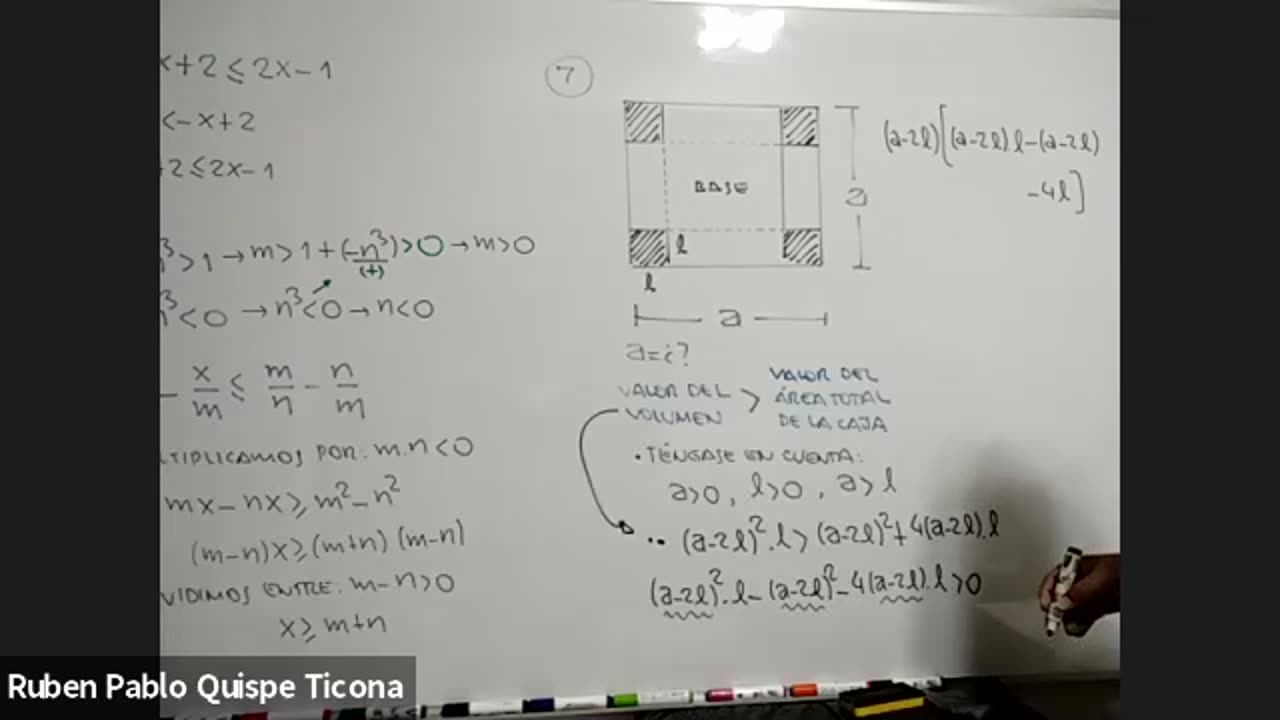 x+2≤2x-1
<-x+2
+2≤2x-1
n³>1→m>1+(-n³)>0→m>0
(+)
n³<0→n³<0→n<0
- x/m ≤ m/n - n/m
LTIPLICAMOS POR: m.n<0
mx-nx≥m²-n²
(m-n)x≥(m+n)(m-n)
VIDIMOS ENTRE: m-n>0
x≥m+n
7
BASE
l
l
a
a
a=¿?
VALOR DEL VOLUMEN > VALOR DEL ÁREA TOTAL DE LA CAJA
• TÉNGASE EN CUENTA:
a>0, l>0, a>l
•• (a-2l)².l>(a-2l)²+4(a-2l).l
(a-2l)².l-(a-2l)²-4(a-2l).l>0
(a-2l)[(a-2l)l-(a-2l)
-4l]
Ruben Pablo Quispe Ticona